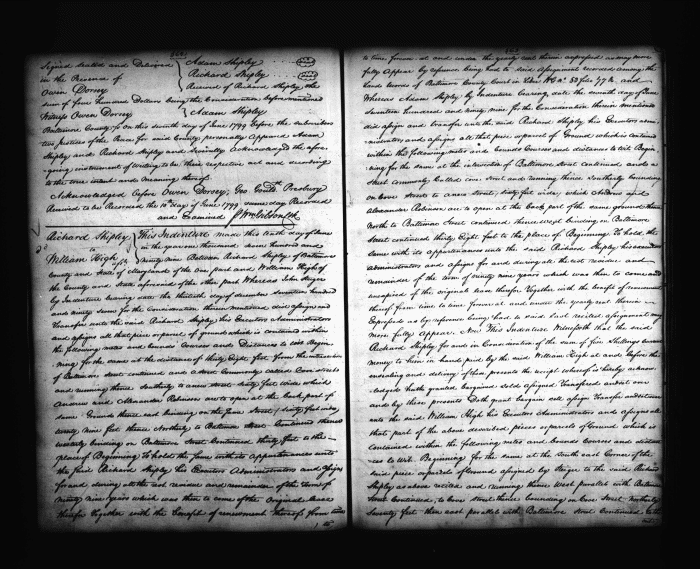 Signed Sealed and Delivered Adam Shipley
in the Presence of Richard Shipley
Owen Dorsey Received of Richard Shipley the
sum of four hundred Dollars being the Consideration before mentioned
Witness Owen Dorsey Adam Shipley
Baltimore County Sc on this seventh day of June 1799 before the subscribers
two Justices of the Peace for said County personally Appeared Adam
Shipley and Richard Shipley and severally Acknowledged the afore
going instrument of writing to be their respective act and deed according
to the true intent and meaning thereof
Acknowledged before Owen Dorsey, Geo Presbury
Received to be Recorded the 10th day of June 1799 same day Recorded
and Examined Wm Gibson Clk
Richard Shipley This Indenture made this tenth day of June
to in the year one thousand seven hundred and
William High ninety Nine Between Richard Shipley of Baltimore
County and State of Maryland of the One part and William High of
the County and State aforesaid of the other part Whereas John Steiger
by Indenture bearing date the thirtieth day of december seventeen hundred
and ninety seven for the Consideration therein mentioned did assign and
Transfer unto the said Richard Shipley his Executors Administrators
and assigns all that piece or parcel of ground which is contained within
the following metes and bounds Courses and Distances to wit Begin
ning for the same at the distance of thirty Eight feet from the intersection
of Baltimore street continued and a street Commonly called Cove street
and running thence Southerly to a new street sixty feet wide which
Andrew and Alexander Robinson are to open at the back part of
same Ground thence east binding on the same Street
twenty Nine feet thence Northerly to Baltimore Street Continued thence
westerly binding on Baltimore Street Continued thirty feet to the
place of Beginning To hold the same with its appurtenances unto
the said Richard Shipley his Executors Administrators and Assigns
for and during all the rest residue and remainder of the Term of
Ninety Nine years which was then to come of the Original lease
therefor together with the benefit of renewment thereof from time
to time forever at and under the yearly rent therein expressed as may more
fully Appear by reference being had to said assignment recorded among the
land Records of Baltimore County Court in Liber WG No 53 folio 77 &c and
Whereas Adam Shipley by Indenture bearing date the seventh day of June
Seventeen hundred and ninety nine for the Consideration therein mentioned
did assign and transfer unto the said Richard Shipley his Executors Admi
nistrators and assigns all that piece or parcel of Ground which is contained
within the following metes and bounds Courses and distances to wit Begin
ning for the same at the intersection of Baltimore Street continued and a
street Commonly called Cove street and running thence Southerly bounding
on Cove Street to a new street sixty feet wide, which Andrew and
Alexander Robinson are to open at the back part of the same ground thence
North to Baltimore Street continued thence West binding on Baltimore
Street continued thirty Eight feet to the place of Beginning To hold the
same with its appurtenances unto the said Richard Shipley his executors
administrators and assigns for and during all the rest residue and
remainder of the term of ninety nine years which was then to come and
unexpired of the original lease therefor Together with the benefit of renewment
thereof from time to time forever at and under the yearly rent therein
Expressed as by reference being had to said last recited assignment may
more fully Appear. Now This Indenture Witnesseth that the said
Richard Shipley for and in Consideration of the sum of five Shillings Current
money to him in hand paid by the said William High at and before the
sealing and delivery of these presents the receipt whereof is hereby acknow
ledged hath granted bargained sold assigned Transfered and set over
and by these presents Doth grant bargain sell assign Transfer and set over
unto the said William High his Executors Administrators and assigns all
that part of the above described pieces or parcels of Ground which is
contained within the following metes and bounds Courses and distan
ces to Wit. Beginning for the same at the South east Corner of the
said piece or parcel of Ground assigned by Steiger to the said Richard
Shipley as above recited and running thence West parallel with Baltimore
Street Continued to Cove Street thence bounding on Cove Street Northerly
Seventy feet then east parallel with Baltimore Street Continued